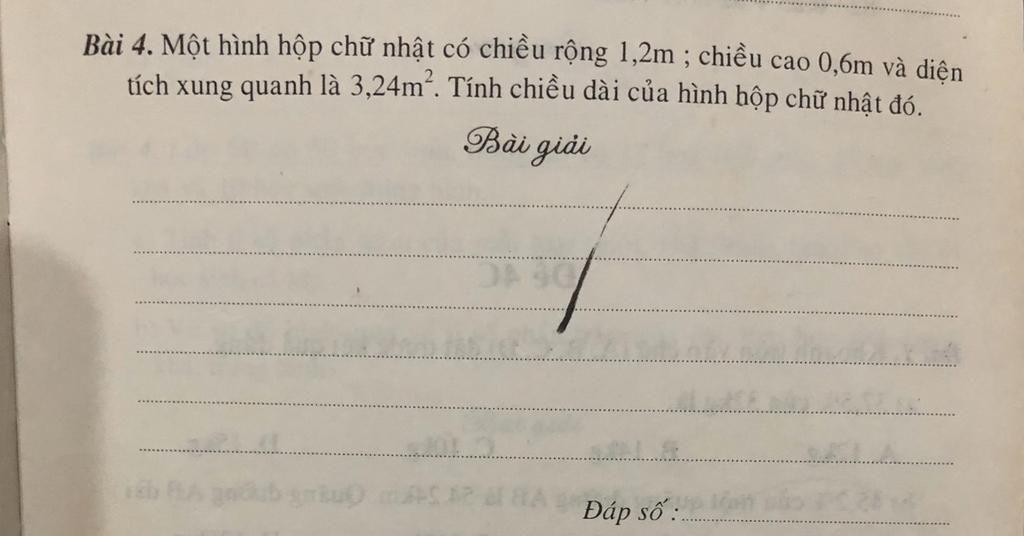 Bài 4. Một hình hộp chữ nhật có chiều rộng 1,2m ; chiều cao 0,6m và diện
tích xung quanh là 3,24m². Tính chiều dài của hình hộp chữ nhật đó.
Bài giải
Đáp số :